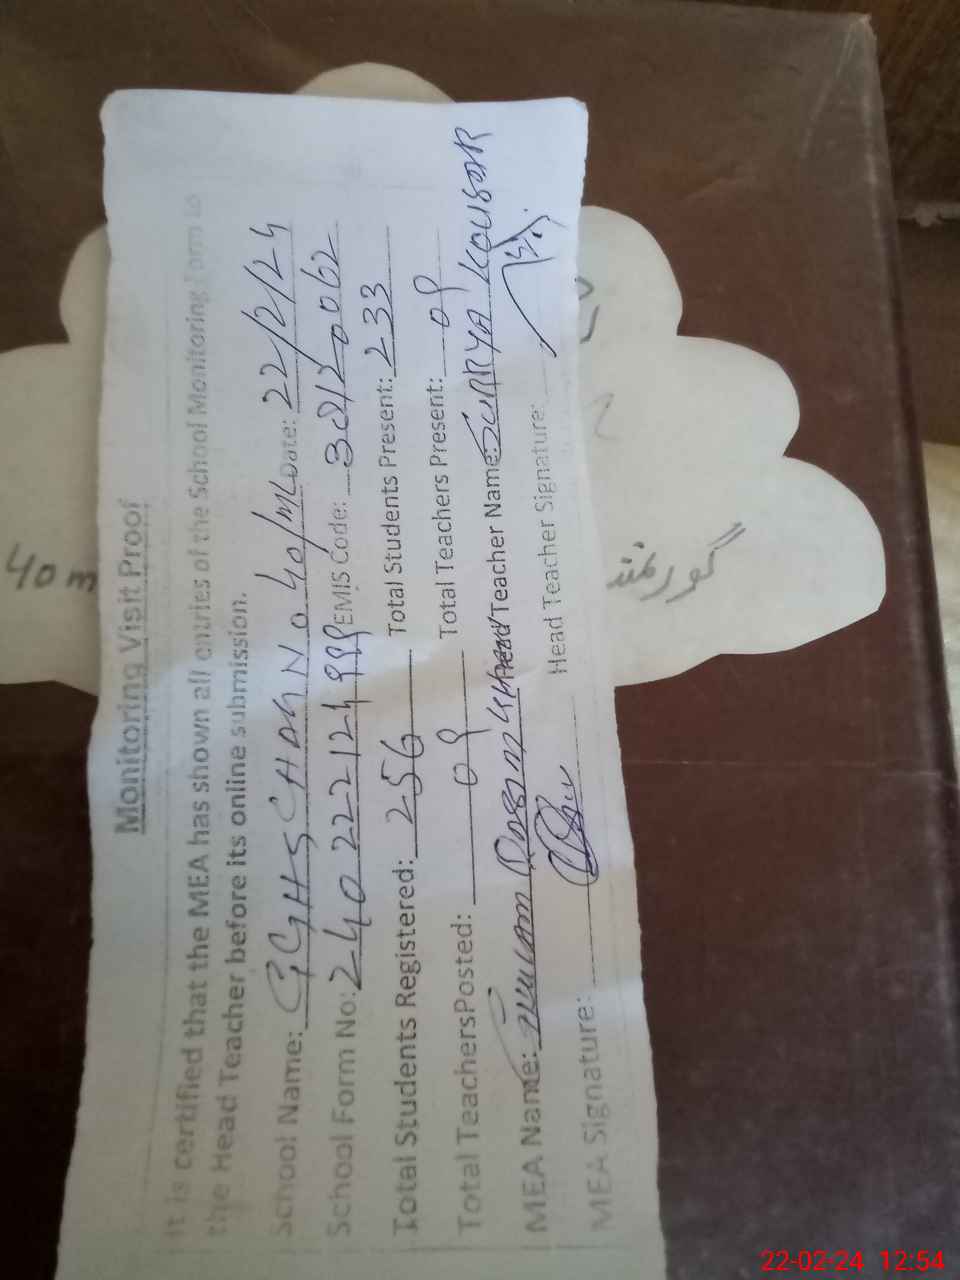 Monitoring Visit Proof
It is certified that the MEA has shown all entries of the School Monitoring Form to
the Head Teacher before its online submission.
School Name: GGHS CHAK No 40/ML Date: 22/2/24
School Form No: 240222124999 EMIS Code: 38120062
Total Students Registered: 256 Total Students Present: 233
Total Teachers Posted: 09 Total Teachers Present: 09
MEA Name: Head Teacher Name: SURRYA KOUSAR
MEA Signature: Head Teacher Signature:
40 m
گورنمنٹ
22-02-24 12:54